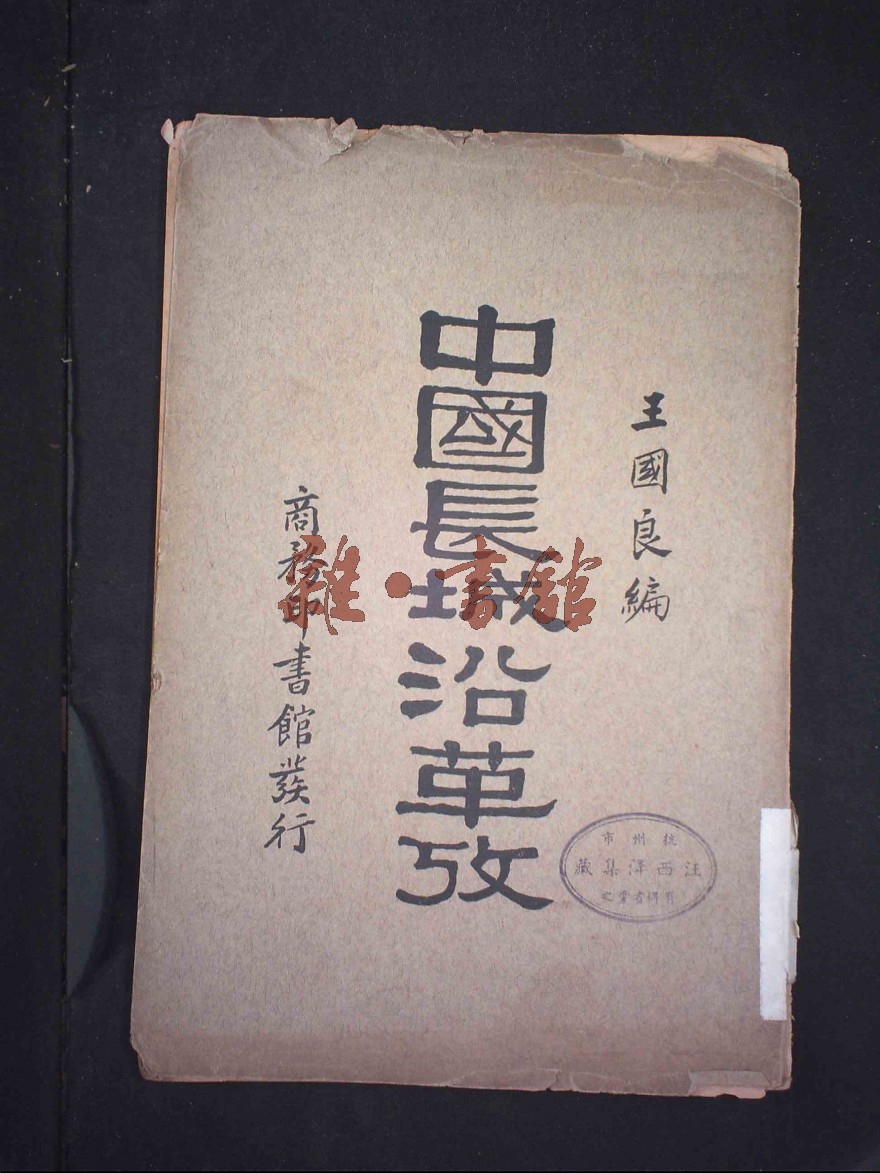 王國良編
中國長城沿革攷
商務印書館發行
雜·書館
杭州市
汪西澤集藏
有得者寶之